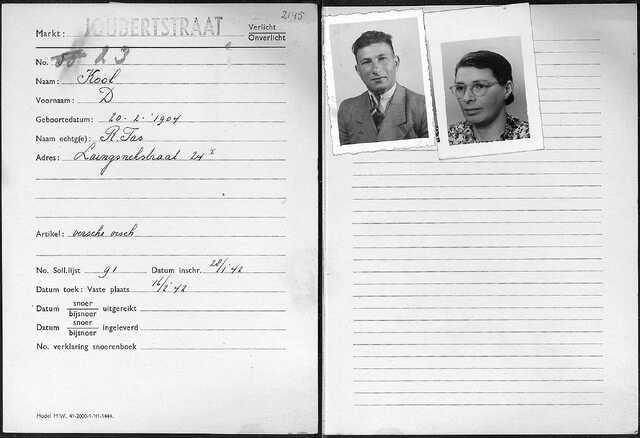 2145
Markt: JOUBERTSTRAAT Verlicht
Onverlicht
No. 23
Naam: Kool
Voornaam: D
Geboortedatum: 20-2-1904
Naam echtg(e): R. Tas
Adres: Laingsnekstraat 24
Artikel: versche visch
No. Soll.lijst 91 Datum inschr. 28/1'42
Datum toek: Vaste plaats 16/2'42
Datum snoer
bijsnoer uitgereikt
Datum snoer
bijsnoer ingeleverd
No. verklaring snoerenboek